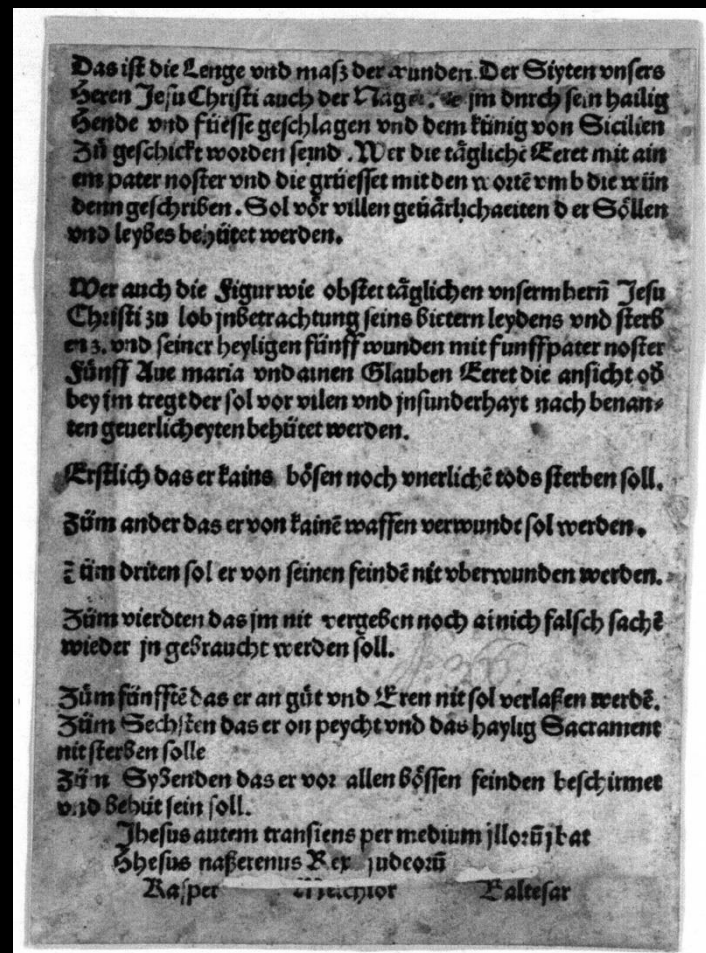 Das ist die Lenge vnd masz der wunden. Der Siyten vnsers
Heren Jesu Christi auch der Nagel. die jm dnrch sein hailig
Hende vnd füesse geschlagen vnd dem künig von Sicilien
Zů geschickt worden seind. Wer die tägliche̅ Eeret mit ain
em pater noster vnd die grüesset mit den worte̅ vmb die wün
denn geschriben. Sol vor villen geuärlichaeiten der Söllen
vnd leybes behütet werden.
Wer auch die Figur wie obstet täglichen vnserm hern̅ Jesu
Christi zu lob jnbetrachtung seins bictern leydens vnd sterb
enz. vnd seiner heyligen fünff wunden mit funff pater noster
Fünff Aue maria vnd ainen Glauben Eeret die ansicht od
bey jm tregt der sol vor vilen vnd jnsunderhayt nach benan-
ten geuerlicheyten behütet werden.
Erstlich das er kains bösen noch vnerliche̅ tods sterben soll.
Züm ander das er von kaine̅ waffen verwundt sol werden.
Züm driten sol er von seinen feinde̅ nit vberwunden werden.
Züm vierdten das jm nit vergeben noch ainich falsch sache̅
wieder jn gebraucht werden soll.
Züm fünffte̅ das er an güt vnd Eren nit sol verlaßen werde̅.
Züm Sechsten das er on peycht vnd das haylig Sacrament
nit sterben solle
Züm Sybenden das er vor allen bössen feinden beschirmet
vnd behüt sein soll.
Jhesus autem transiens per medium jlloru̅ jbat
Jhesus naßerenus Rex judeoru̅
Kasper Melchior Baltesar